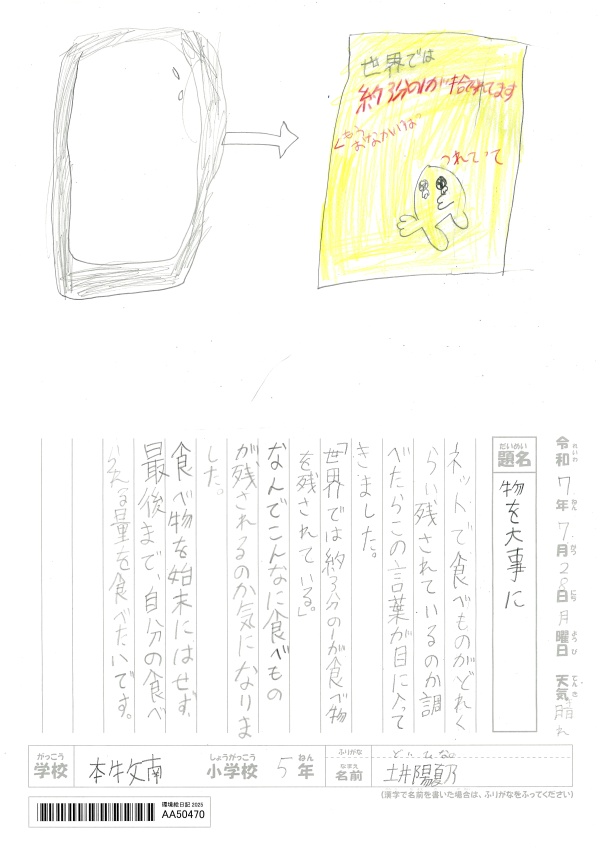 世界では
約3分の1が捨てられてます
もう
おなかいっぱ
つれてって
令和7年7月28日月曜日 天気 晴れ
れいわ ねん がつ にち ようび てんき
だいめい
題名
物を大事に
ネットで食べものがどれく
らい残されているのか調
べたらこの言葉が目に入って
きました。
「世界では約3分の1が食べ物
を残されている。」
なんでこんなに食べもの
が残されるのか気になりま
した。
食べ物を始末にはせず、
最後まで、自分の食べ
られる量を食べたいです。
がっこう
学校
本牧南
しょうがっこう
小学校
5
ねん
年
ふりがな
どい ひなの
なまえ
名前
土井陽夏乃
(漢字で名前を書いた場合は、ふりがなをふってください)
環境絵日記 2025
AA50470